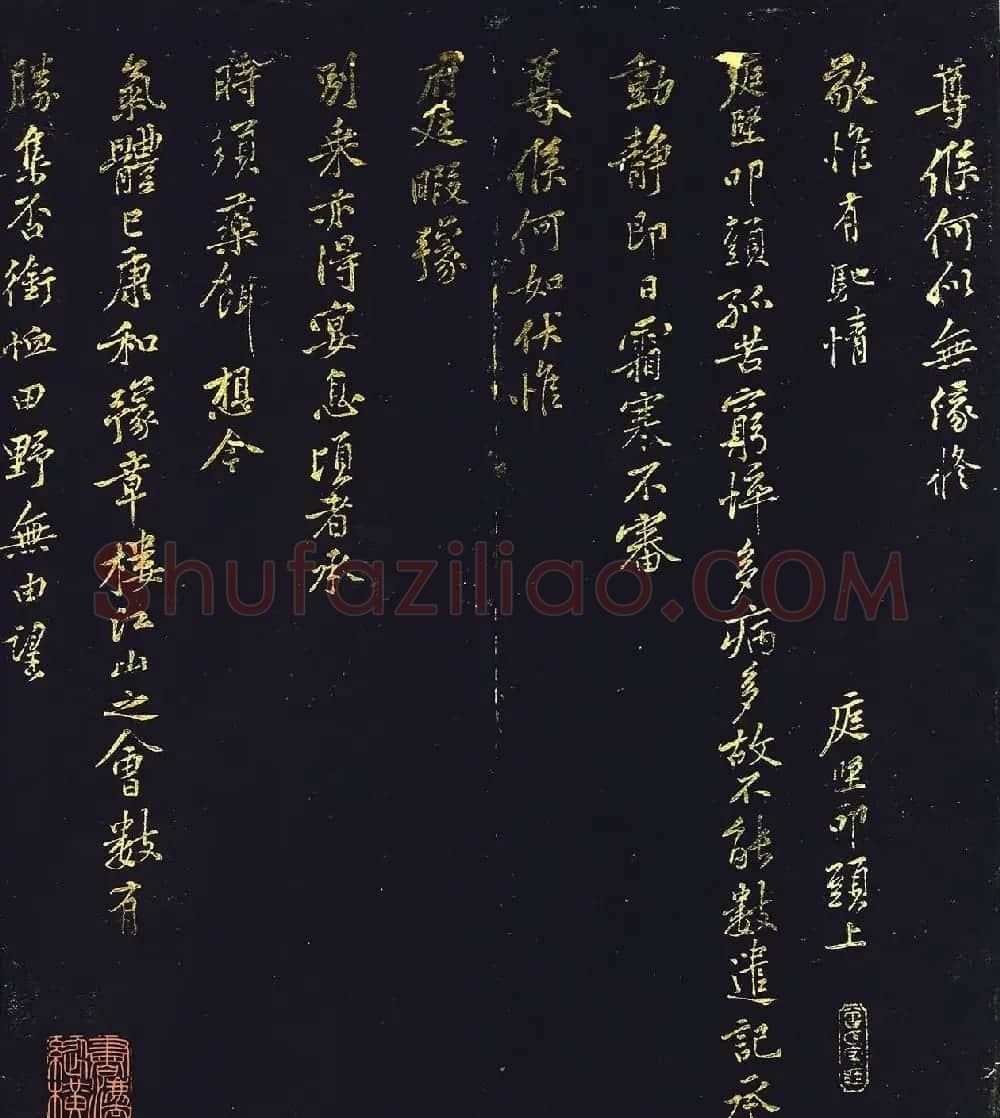 尊候何似無緣修
敬惟有馳情
庭堅叩頭上
庭堅叩頭孤苦窮悴多病多故不能數遣記承
動靜即日霜寒不審
尊候何如伏惟
府庭暇豫
別乘亦得宴息頃者承
時須藥餌想令
氣體已康和豫章樓江山之會數有
勝集否銜恤田野無由望
Shufaziliao.COM
書法
縱橫